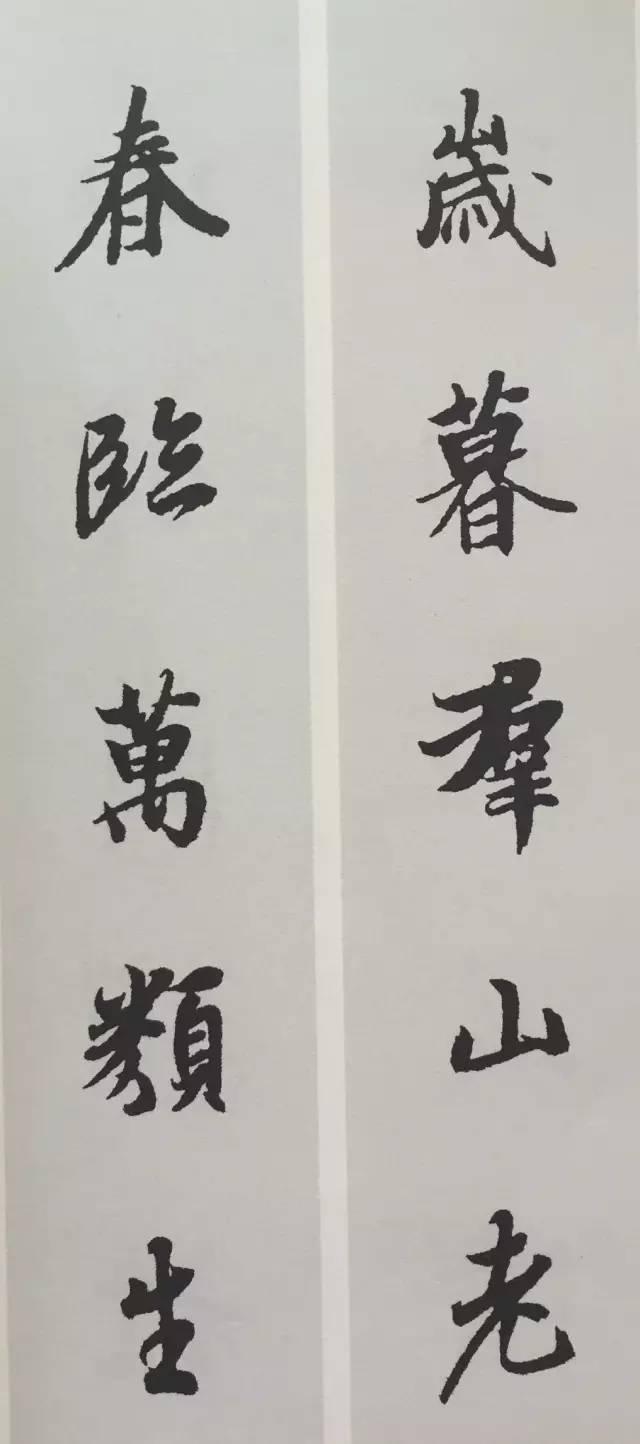 歲暮羣山老
春臨萬類生